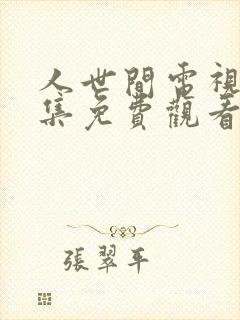 人世間電視
集免費觀看
張翠平